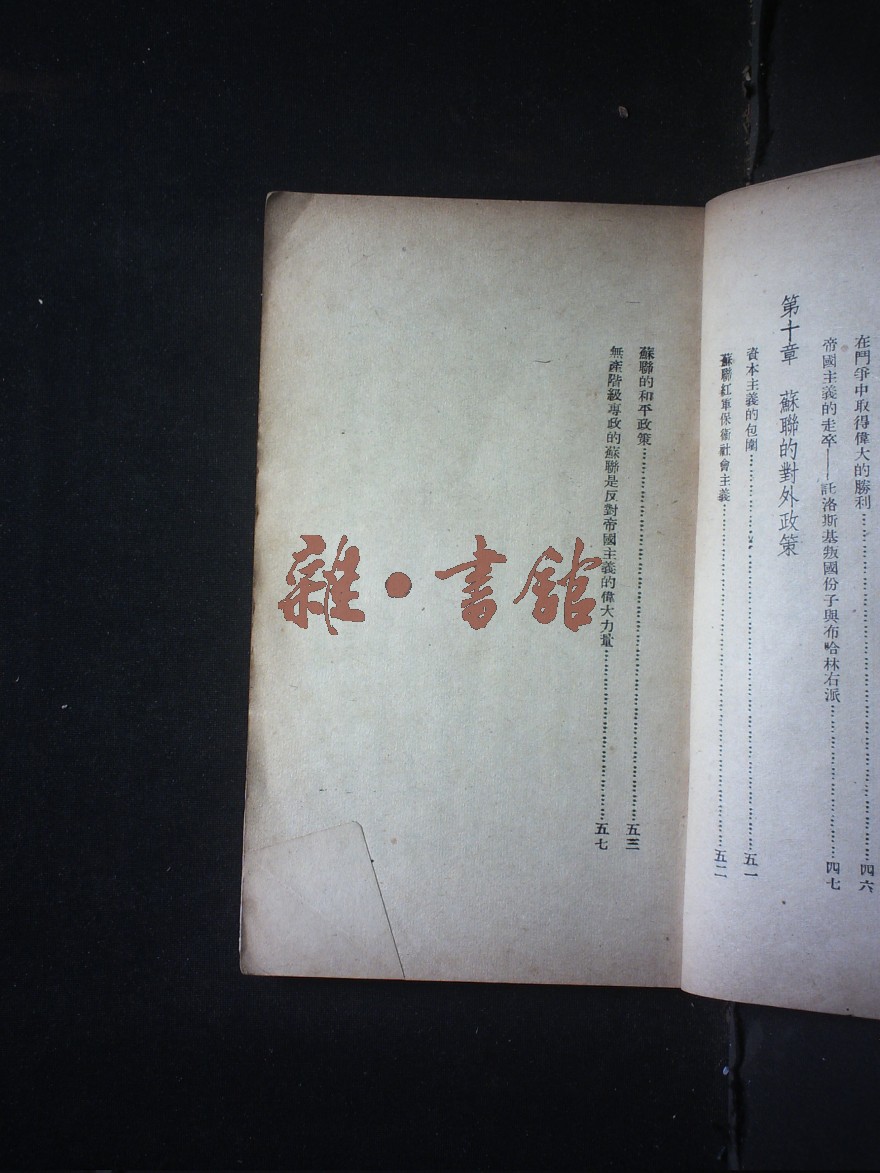 在鬥爭中取得偉大的勝利……四六
帝國主義的走卒——託洛斯基叛國份子與布哈林右派……四七
第十章　蘇聯的對外政策
資本主義的包圍……五一
蘇聯紅軍保衛社會主義……五二
蘇聯的和平政策……五三
無產階級專政的蘇聯是反對帝國主義的偉大力量……五七
雜·書館